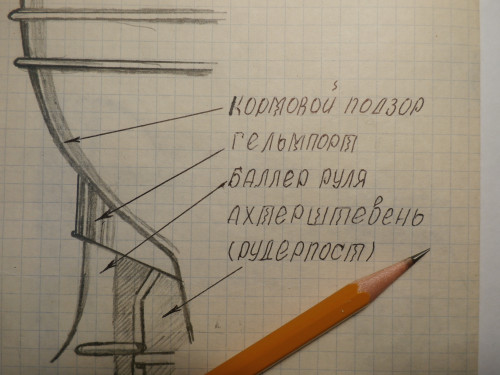 КОРМОВОЙ ПОДЗОР
ГЕЛЬМПОРТ
БАЛЛЕР РУЛЯ
АХТЕРШТЕВЕНЬ
(РУДЕРПОСТ)